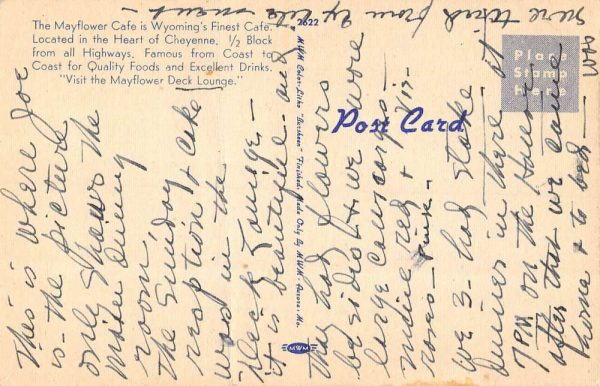 The Mayflower Cafe is Wyoming's Finest Cafe.
Located in the Heart of Cheyenne, ½ Block
from all Highways. Famous from Coast to
Coast for Quality Foods and Excellent Drinks.
"Visit the Mayflower Deck Lounge."
2622
M.W.M. Color-Litho "Surchrom" Finished. Made Only By M.W.M.- Aurora, Mo.
MWM
Post Card
Place
Stamp
Here
This is where Joe
is - the picture
only shows the
Main Dining
room,
The Sunday
reception & cake
was in the
Deck Lounge -
it is beautiful - and
They had flowers
besides & we wore
large corsages -
mine red & Vir-
roses - pink -
We 3 - had steak
Dinner in there - at
7 PM on the House
after that we came
home & to bed -
soon
sure tired from